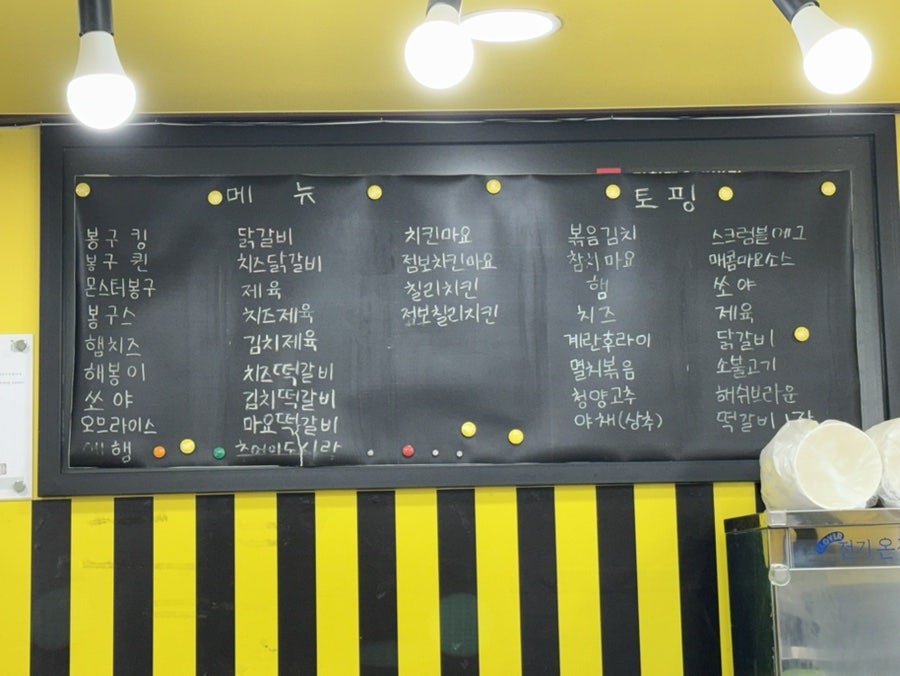 메 뉴
봉구 킹
봉구 퀸
몬스터봉구
봉구스
햄치즈
해봉이
쏘야
오므라이스
햄
닭갈비
치즈닭갈비
제육
치즈제육
김치제육
치즈떡갈비
김치떡갈비
마요떡갈비
추억의도시락
치킨마요
점보치킨마요
칠리치킨
점보칠리치킨
토핑
볶음김치
참치마요
햄
치즈
계란후라이
멸치볶음
청양고추
야채(상추)
스크럼블에그
매콤마요소스
쏘야
제육
닭갈비
소불고기
해쉬브라운
떡갈비 1장
전기온